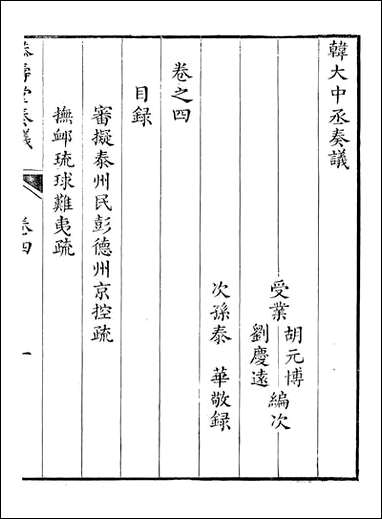 韓大中丞奏議
受業 胡元博 劉慶遠 編次
次孫泰 華敬録
卷之四
目録
審擬泰州民彭德州京控疏
撫卹琉球難夷疏
奏議 卷四 一